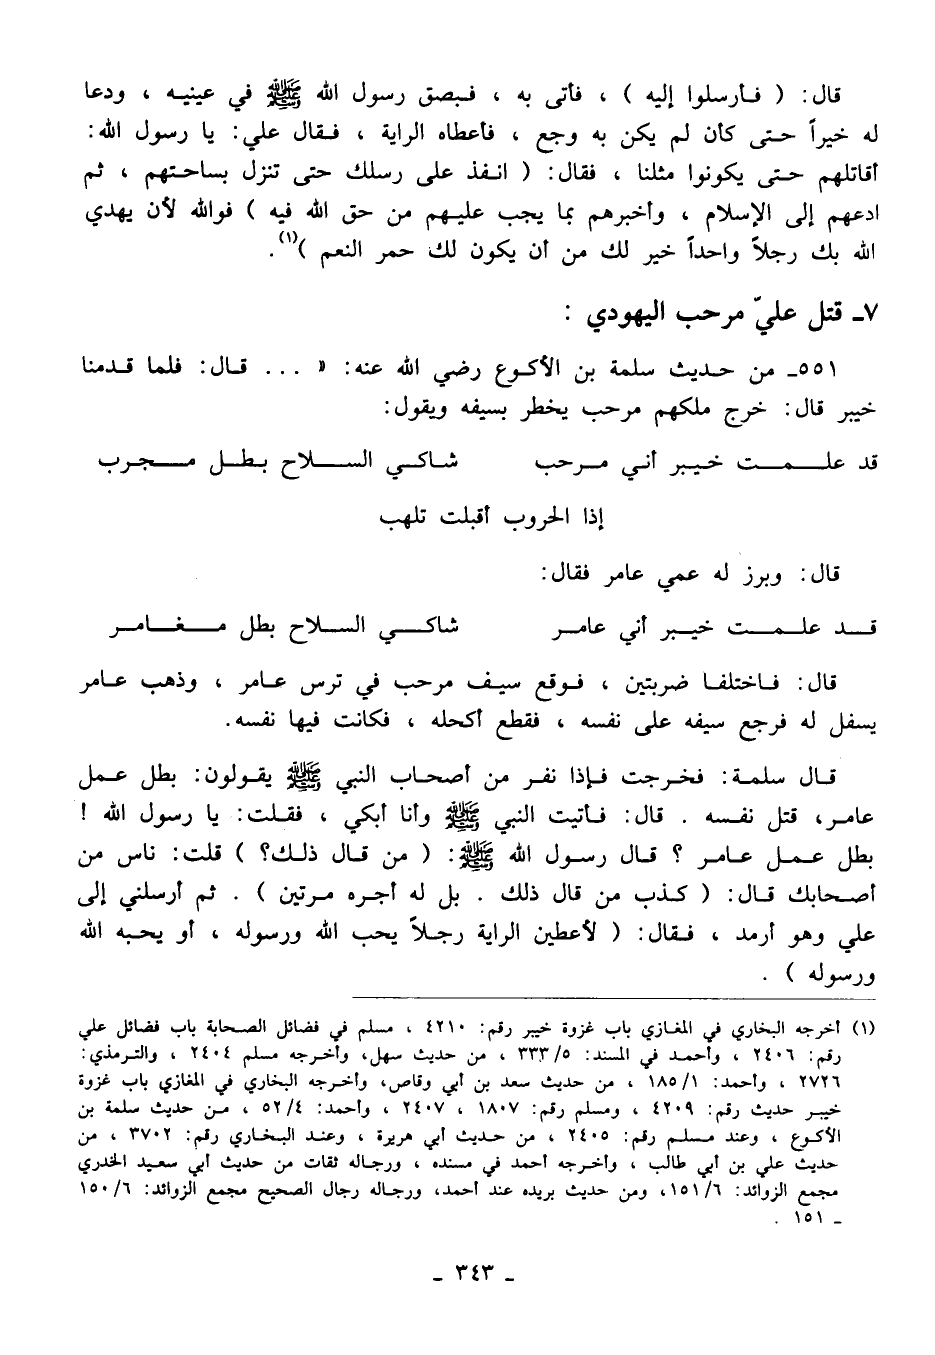 قال: ( فأرسلوا إليه ) ، فأتى به ، فبصق رسول الله ﷺ في عينيه ، ودعا
له خيراً حتى كأن لم يكن به وجع ، فأعطاه الراية ، فقال علي: يا رسول الله:
أقاتلهم حتى يكونوا مثلنا ، فقال: ( انفذ على رسلك حتى تنزل بساحتهم ، ثم
ادعهم إلى الإسلام ، وأخبرهم بما يجب عليهم من حق الله فيه ) فوالله لأن يهدي
الله بك رجلاً واحداً خير لك من أن يكون لك حمر النعم )(١).
٧ـ قتل عليّ مرحب اليهودي :
٥٥١ـ من حديث سلمة بن الأكوع رضي الله عنه: « ... قال: فلما قدمنا
خيبر قال: خرج ملكهم مرحب يخطر بسيفه ويقول:
قد علمت خيبر أني مرحب شاكي السلاح بطل مجرب
إذا الحروب أقبلت تلهب
قال: وبرز له عمي عامر فقال:
قد علمت خيبر أني عامر شاكي السلاح بطل مغامر
قال: فاختلفا ضربتين ، فوقع سيف مرحب في ترس عامر ، وذهب عامر
يسفل له فرجع سيفه على نفسه ، فقطع أكحله ، فكانت فيها نفسه.
قال سلمة: فخرجت فإذا نفر من أصحاب النبي ﷺ يقولون: بطل عمل
عامر، قتل نفسه . قال: فأتيت النبي ﷺ وأنا أبكي ، فقلت: يا رسول الله !
بطل عمل عامر ؟ قال رسول الله ﷺ: ( من قال ذلك؟ ) قلت: ناس من
أصحابك قال: ( كذب من قال ذلك . بل له أجره مرتين ) . ثم أرسلني إلى
علي وهو أرمد ، فقال: ( لأعطين الراية رجلاً يحب الله ورسوله ، أو يحبه الله
ورسوله ) .
(١) أخرجه البخاري في المغازي باب غزوة خيبر رقم: ٤٢١٠ ، مسلم في فضائل الصحابة باب فضائل علي
رقم: ٢٤٠٦ ، وأحمد في المسند: ٣٣٣/٥ ، من حديث سهل، وأخرجه مسلم ٢٤٠٤ ، والترمذي:
٢٧٢٦ ، وأحمد: ١٨٥/١ ، من حديث سعد بن أبي وقاص، وأخرجه البخاري في المغازي باب غزوة
خيبر حديث رقم: ٤٢٠٩ ، ومسلم رقم: ١٨٠٧ ، ٢٤٠٧ ، وأحمد: ٥٢/٤ ، من حديث سلمة بن
الأكوع ، وعند مسلم رقم: ٢٤٠٥ ، من حديث أبي هريرة ، وعند البخاري رقم: ٣٧٠٢ ، من
حديث علي بن أبي طالب ، وأخرجه أحمد في مسنده ، ورجاله ثقات من حديث أبي سعيد الخدري
مجمع الزوائد: ١٥١/٦، ومن حديث بريده عند أحمد، ورجاله رجال الصحيح مجمع الزوائد: ١٥٠/٦
ـ ١٥١ .
ـ ٣٤٣ ـ